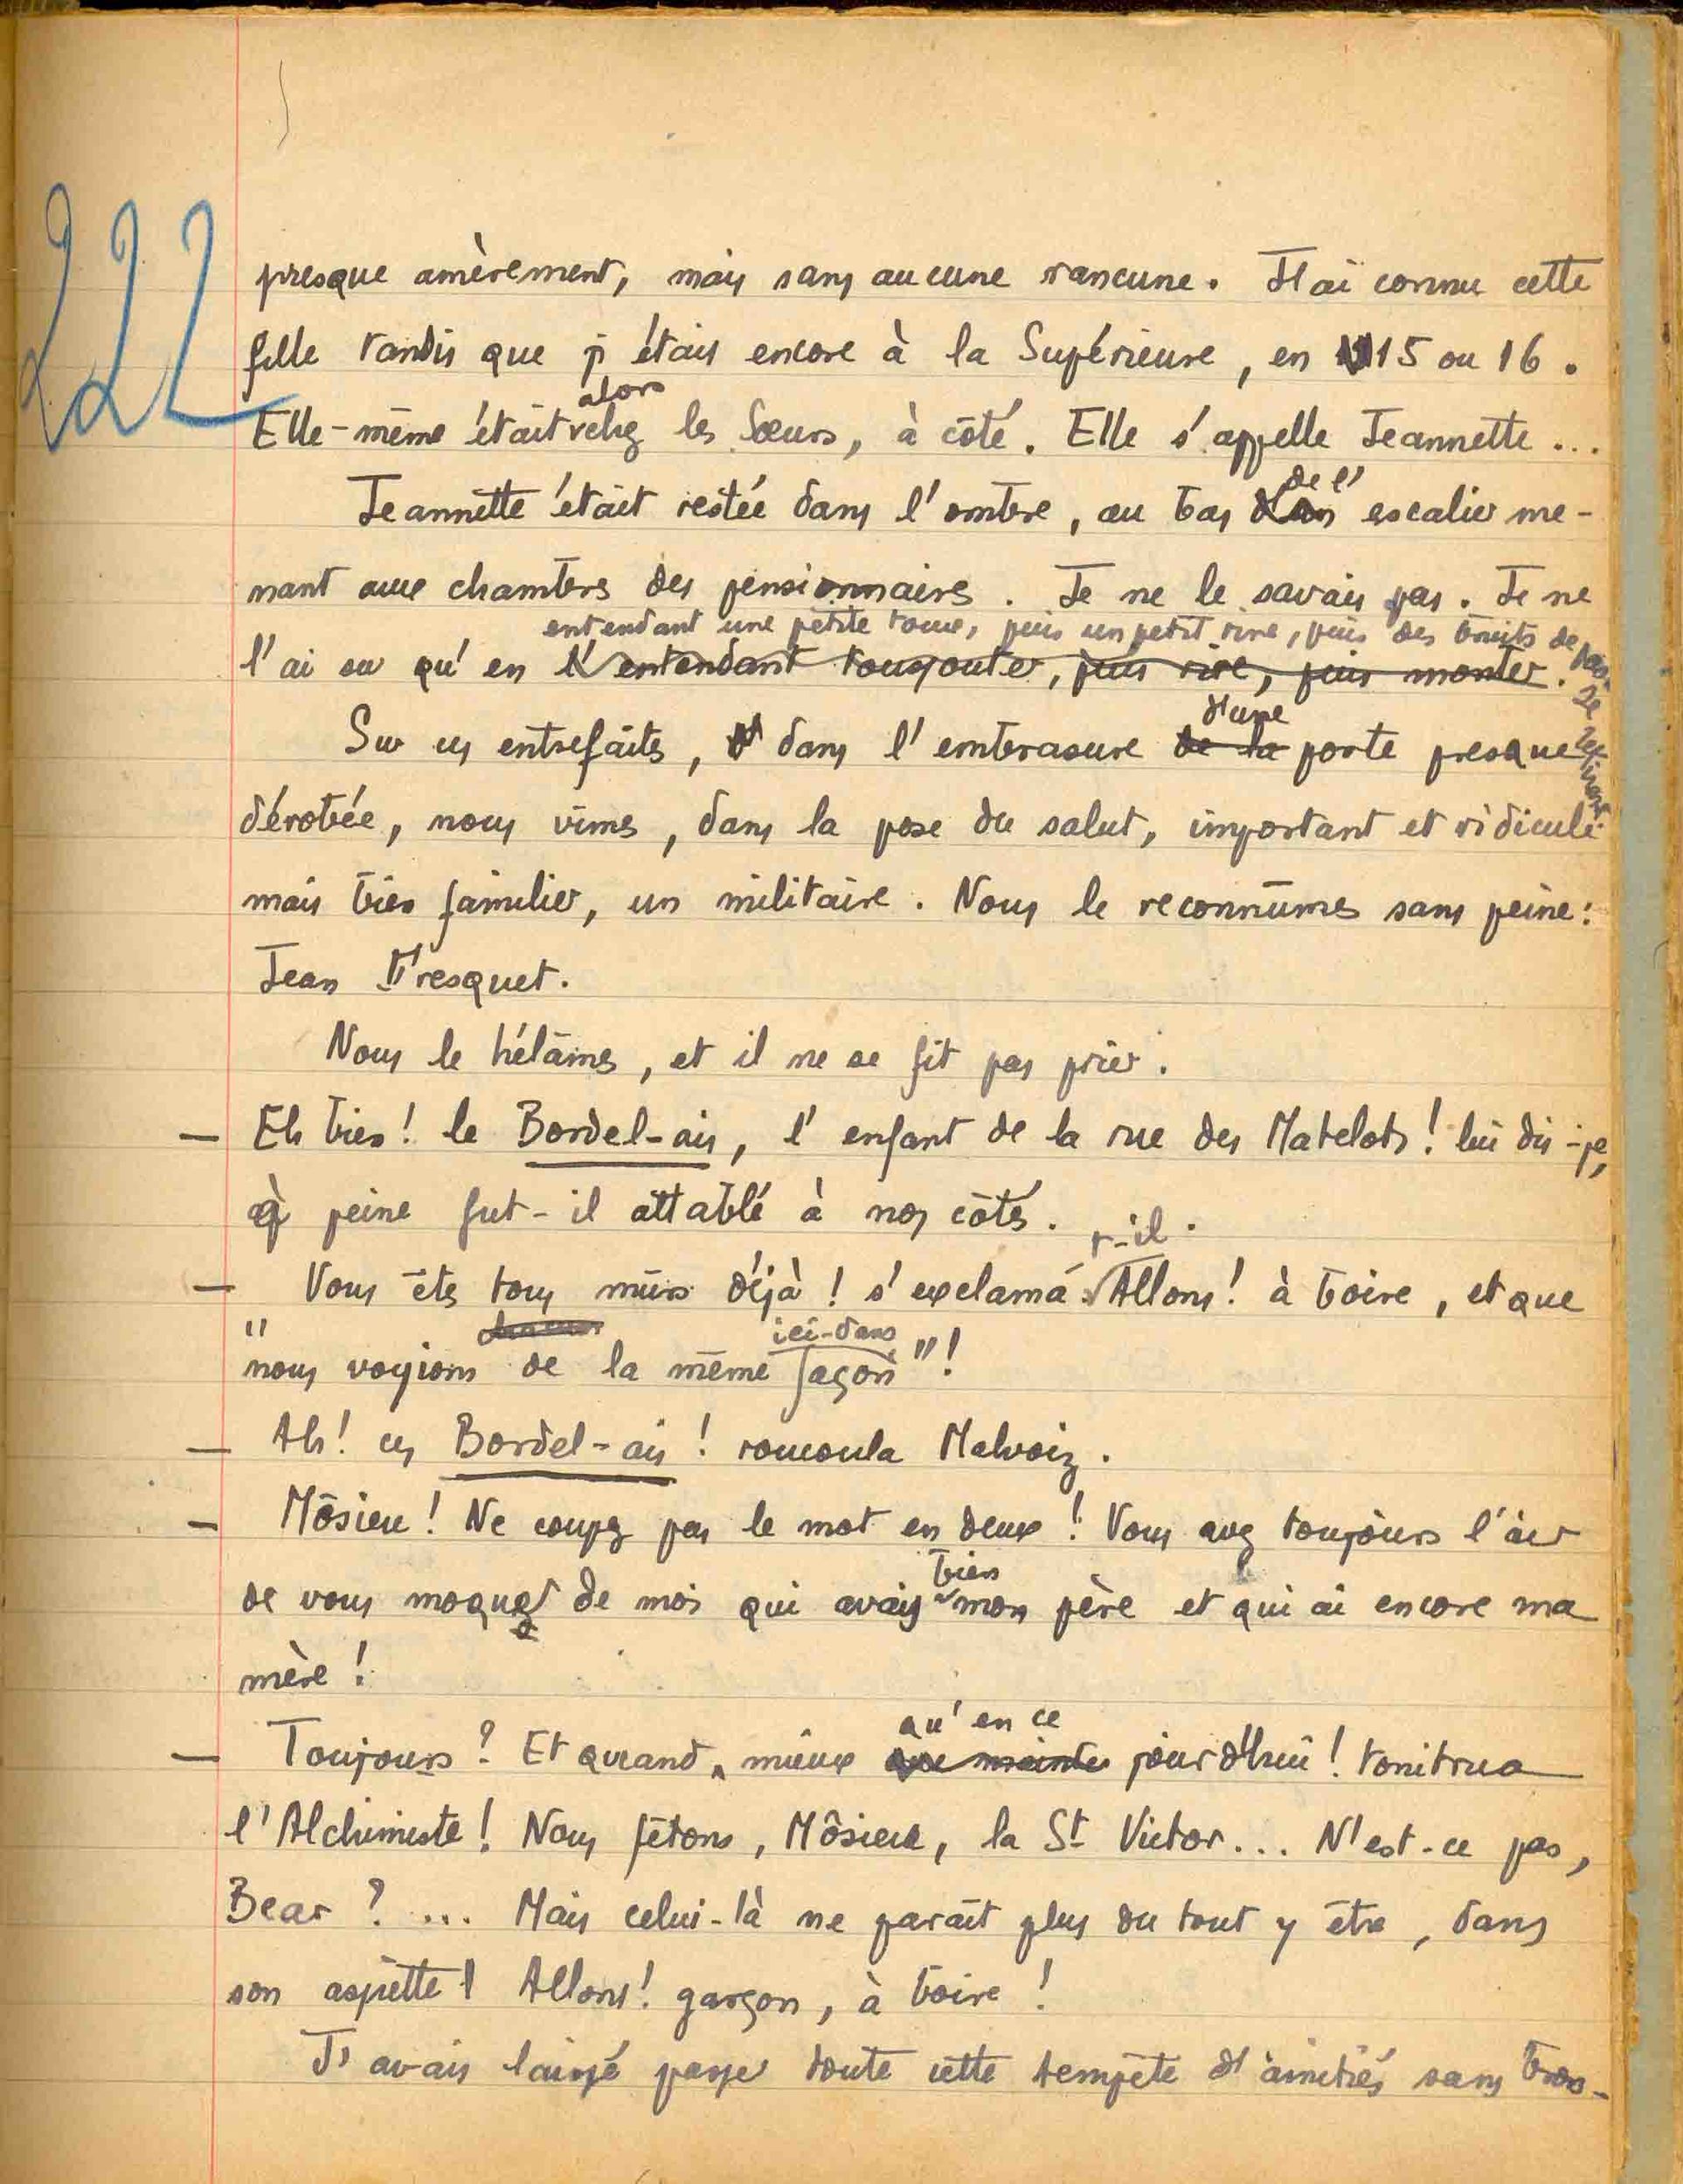 222
presque amèrement, mais sans aucune rancune. J'ai connu cette
fille tandis que j'étais encore à la Supérieure, en 15 ou 16.
alors
Elle-même était chez les Sœurs, à côté. Elle s'appelle Jeannette...
de l'
Jeannette était restée dans l'ombre, au bas escalier me-
nant aux chambres des pensionnaires. Je ne le savais pas. Je ne
entendant une petite toux, puis un petit rire, puis des bruits de pas
l'ai su qu'en l'entendant toussouter, puis rire, puis monter.
se retirant
d'une
Sur ces entrefaites, dans l'embrasure de la porte presque
dérobée, nous vîmes, dans la pose du salut, important et ridicule
mais bien familier, un militaire. Nous le reconnûmes sans peine:
Jean Fresquet.
Nous le hélâmes, et il ne se fit pas prier.
— Eh bien! le Bordel-ais, l'enfant de la rue des Matelots! lui dis-je,
à peine fut-il attablé à nos côtés.
t-il.
— Vous êtes tous mûrs déjà! s'exclama Allons! à boire, et que
ici-dans
"nous voyions de la même façon"!
— Ah! ces Bordel-ais! roucoula Malvoiz.
— Môsieu! Ne coupez pas le mot en deux! Vous avez toujours l'air
bien
de vous moquer de moi qui avais mon père et qui ai encore ma
mère!
qu'en ce
— Toujours? Et quand, mieux jour d'hui! tonitrua
l'Alchimiste! Nous fêtons, Môsieu, la St Victor... N'est-ce pas,
Bear?... Mais celui-là ne paraît plus du tout y être, dans
son assiette! Allons! garçon, à boire!
J'avais laissé passer toute cette tempête d'amitiés sans